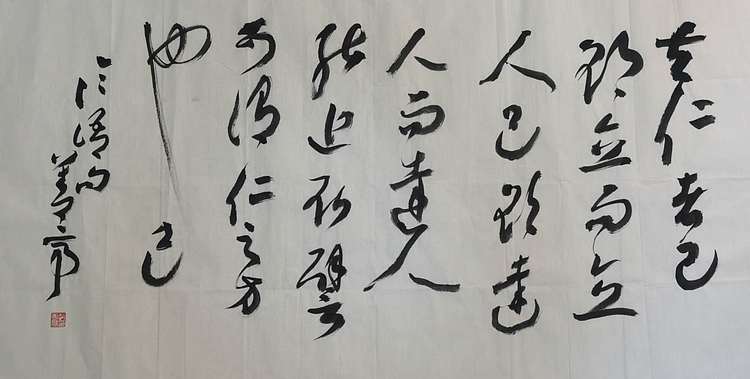 夫仁者己
欲立而立
人己欲達
人而達人
能近取譬
可謂仁之方
也已
論語句